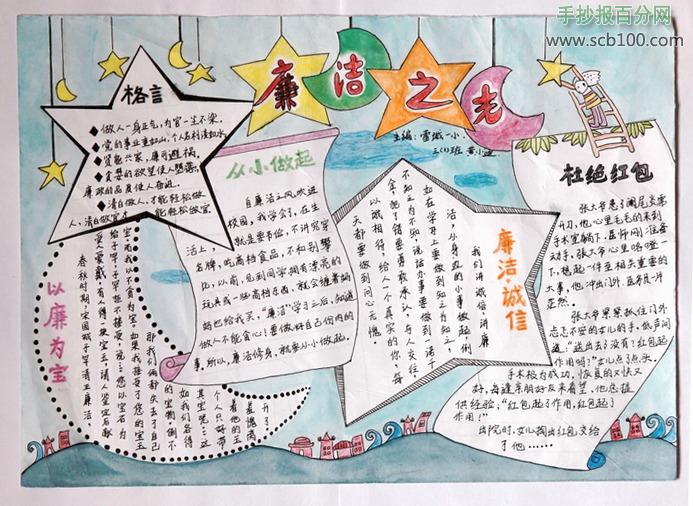 手抄报百分网
www.scb100.com
廉洁之光
主编：雷城一小
三(1)班 黄小迪
格言
◆做人一身正气，为官一尘不染。
◆党的事业重如山，个人名利淡如水。
◆贫能兴家，廉可避祸。
◆贪婪的欲望使人堕落，
廉政的品质使人奋进。
◆清白做人，才能轻松做
从小做起
自廉洁之风吹进
校园，我学会了，在生
活上，就是要节俭，不讲究穿
名牌，吃高档食品，不和别攀
比，以前，见到同学拥有漂亮的
玩具或一些高档东西，就会缠着妈
妈也给我买。“廉洁”学习之后，知道
做人不能贪心！要做好自己份内的
事。所以，廉洁修身，就要从小做起。
廉洁·诚信
我们讲诚信，讲廉
洁，从身边的小事做起，例
如在学习上要做到知之为知之，
不知之为不知，说话办事要做到一诺千
金，犯了错要勇敢承认，与人交往，
以诚相待，给人一个真实的你，每
天都要做到问心无愧。
杜绝红包
张大爷患了阑尾炎需
开刀，他心里毛毛的来到
手术室躺下，医师刚准备
动手，张大爷心里咯噔一
下，想起一件至相关重要的
大事，他冲出门外，医师一片
茫然。
张大爷果果抓住门外
忐忑不安的女儿的手，低声问
道：“送出去了没有？红包起
作用吗？”女儿点了点头。
手术极为成功，恢复的又快又
好，每逢亲朋好友来看望，他总提
供经验：“红包起了作用，红包起了
作用！”
出院时，女儿掏出红包交给
了他……
以廉为宝
春秋时期，宋国城子罕清正廉洁
受人爱戴，有人得一块宝玉，请人鉴定后献
给子罕，子罕拒不接受，说：“您以宝石为
宝，而我以不贪为宝。如果我接受了您的宝玉
那我们俩都失去了自己
的宝物。倒不
如我们各得
其宝呢……”这
个人只好带
着他的玉
羞愧离
开了。